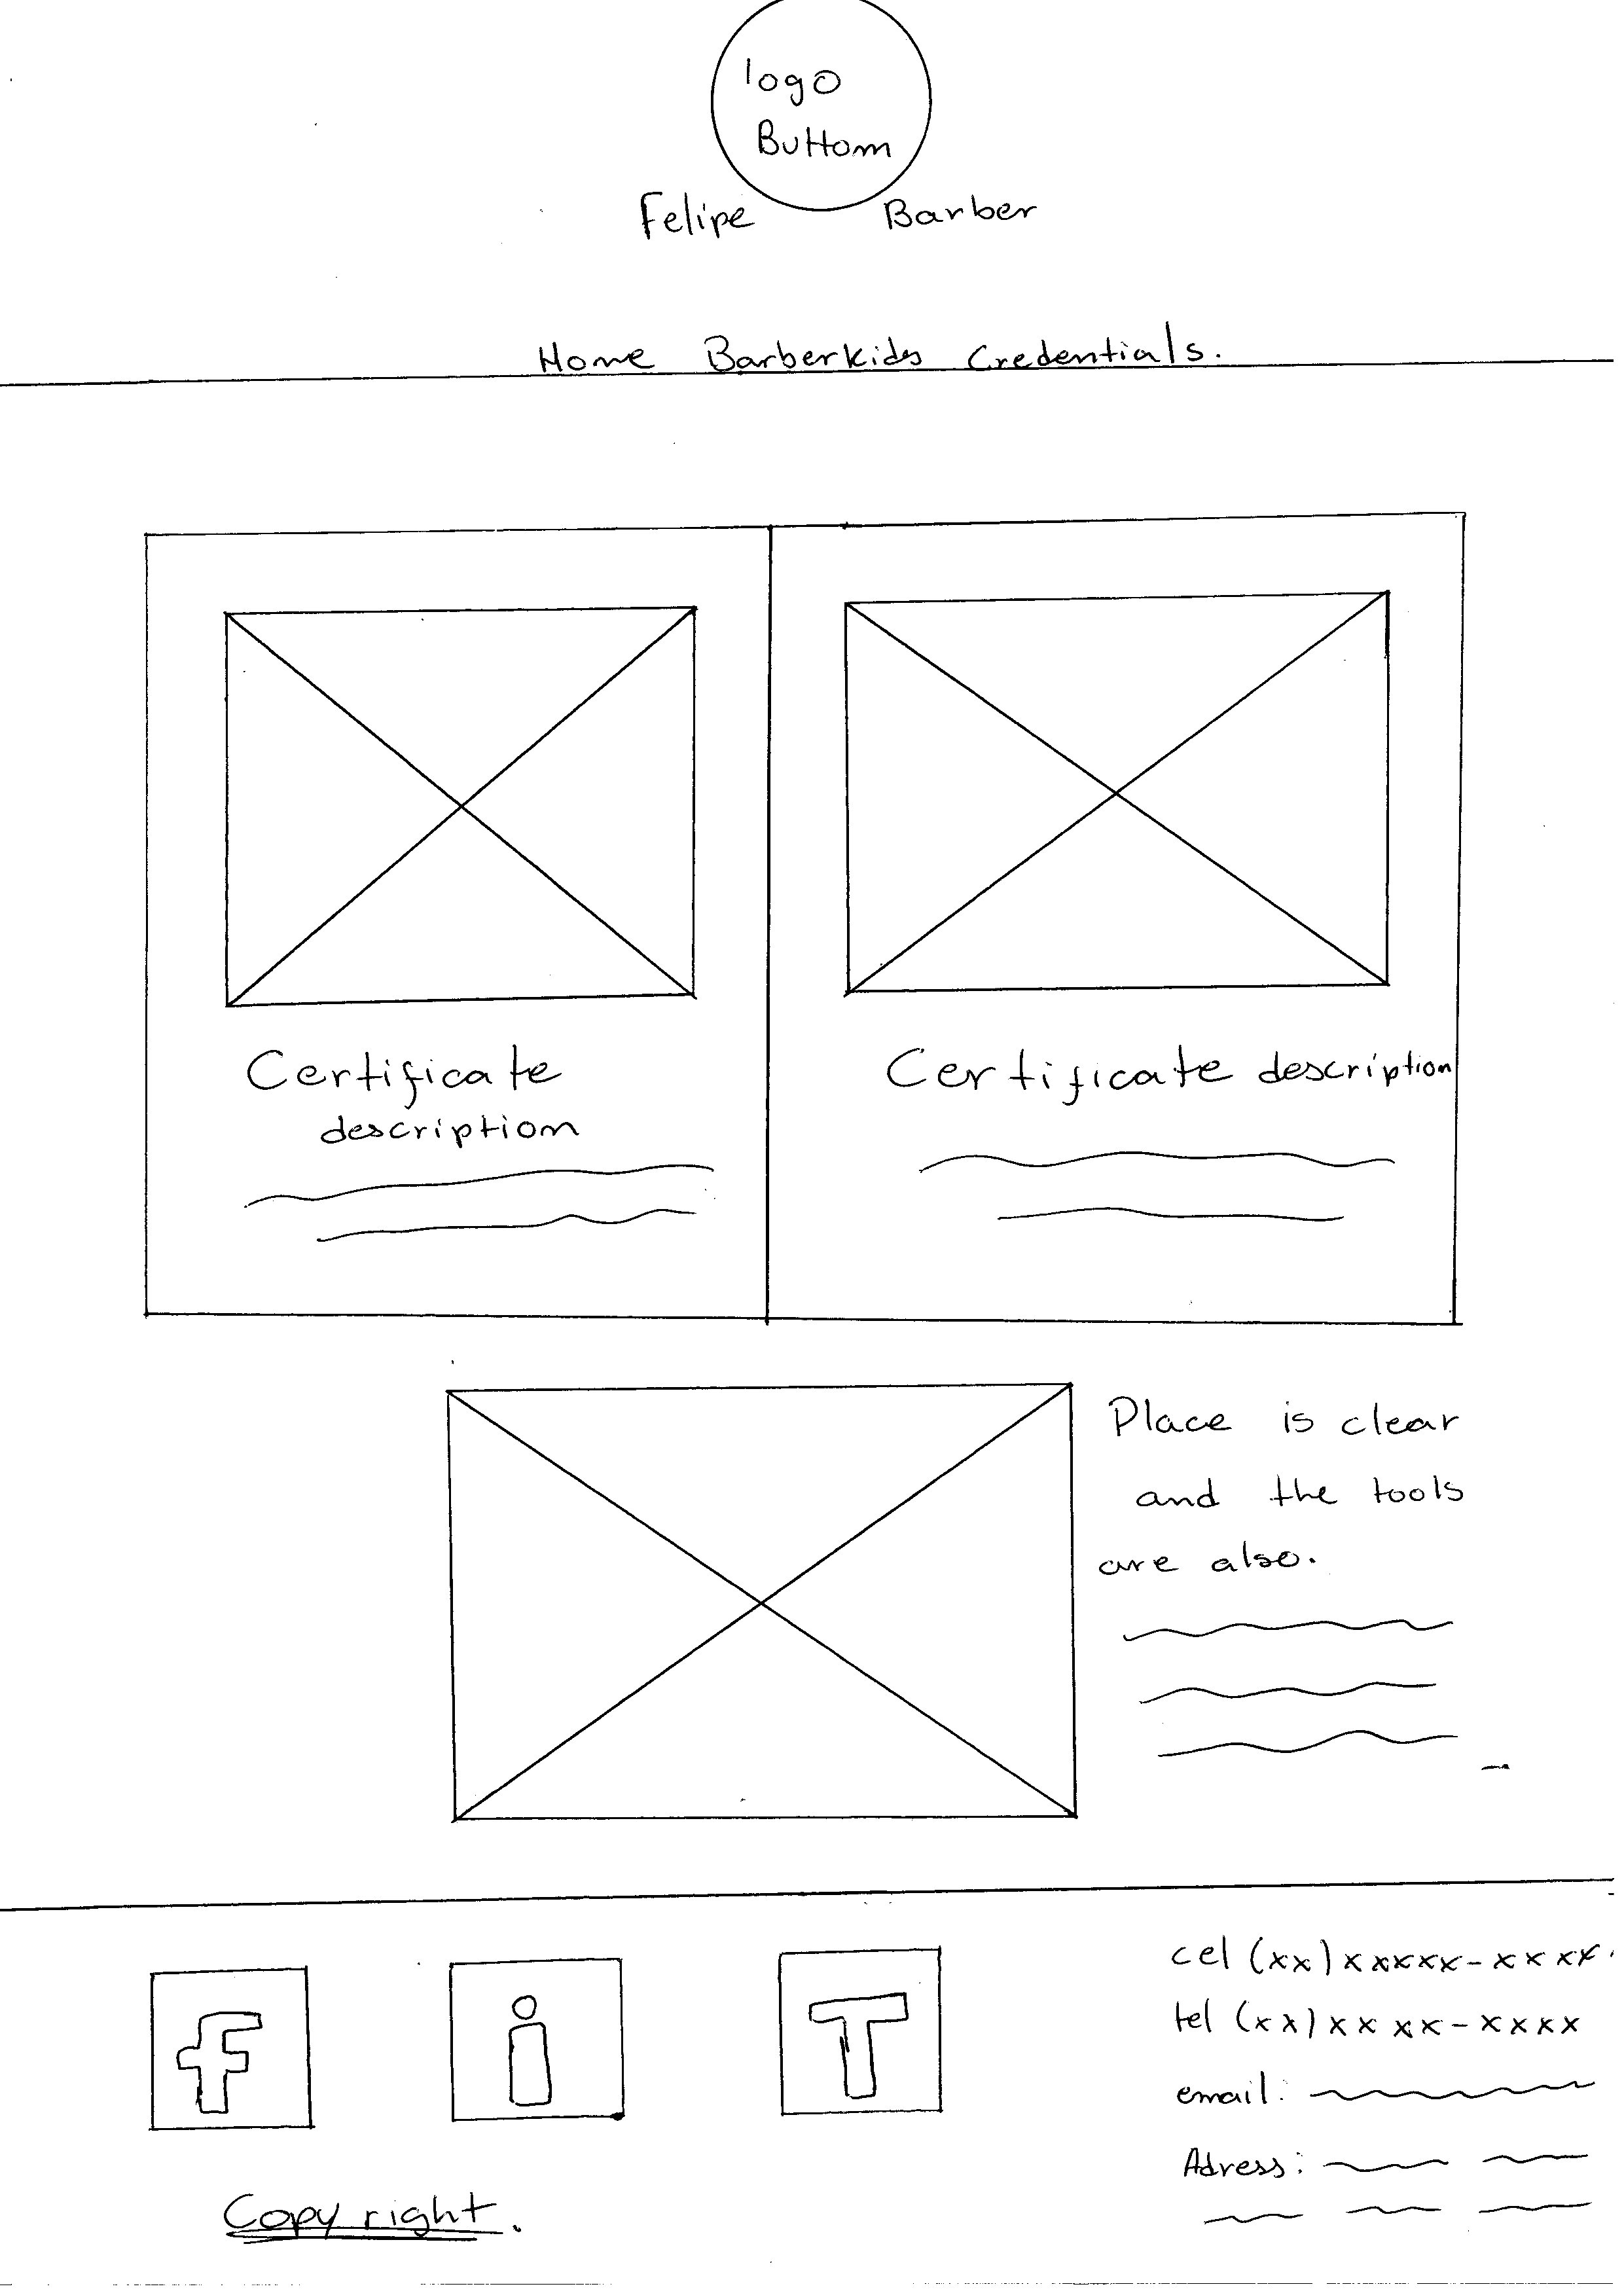 logo
Buttom
Felipe Barber
Home Barberkids Credentials.
Certificate
description
Certificate description
Place is clear
and the tools
are also.
f i T
cel (xx) xxxxx-xxxx.
tel (xx) xxxx-xxxx
email:
Adress:
Copy right.